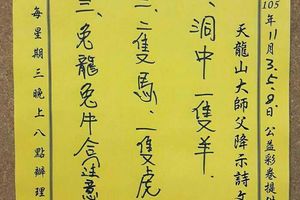 105年11月3.5.8日公益彩卷提供
天龍山大師父降示詩文
、洞中一隻羊.
二、二隻馬、一隻虎
三、兔龍兔牛合注意
每星期三晚上八點辦理